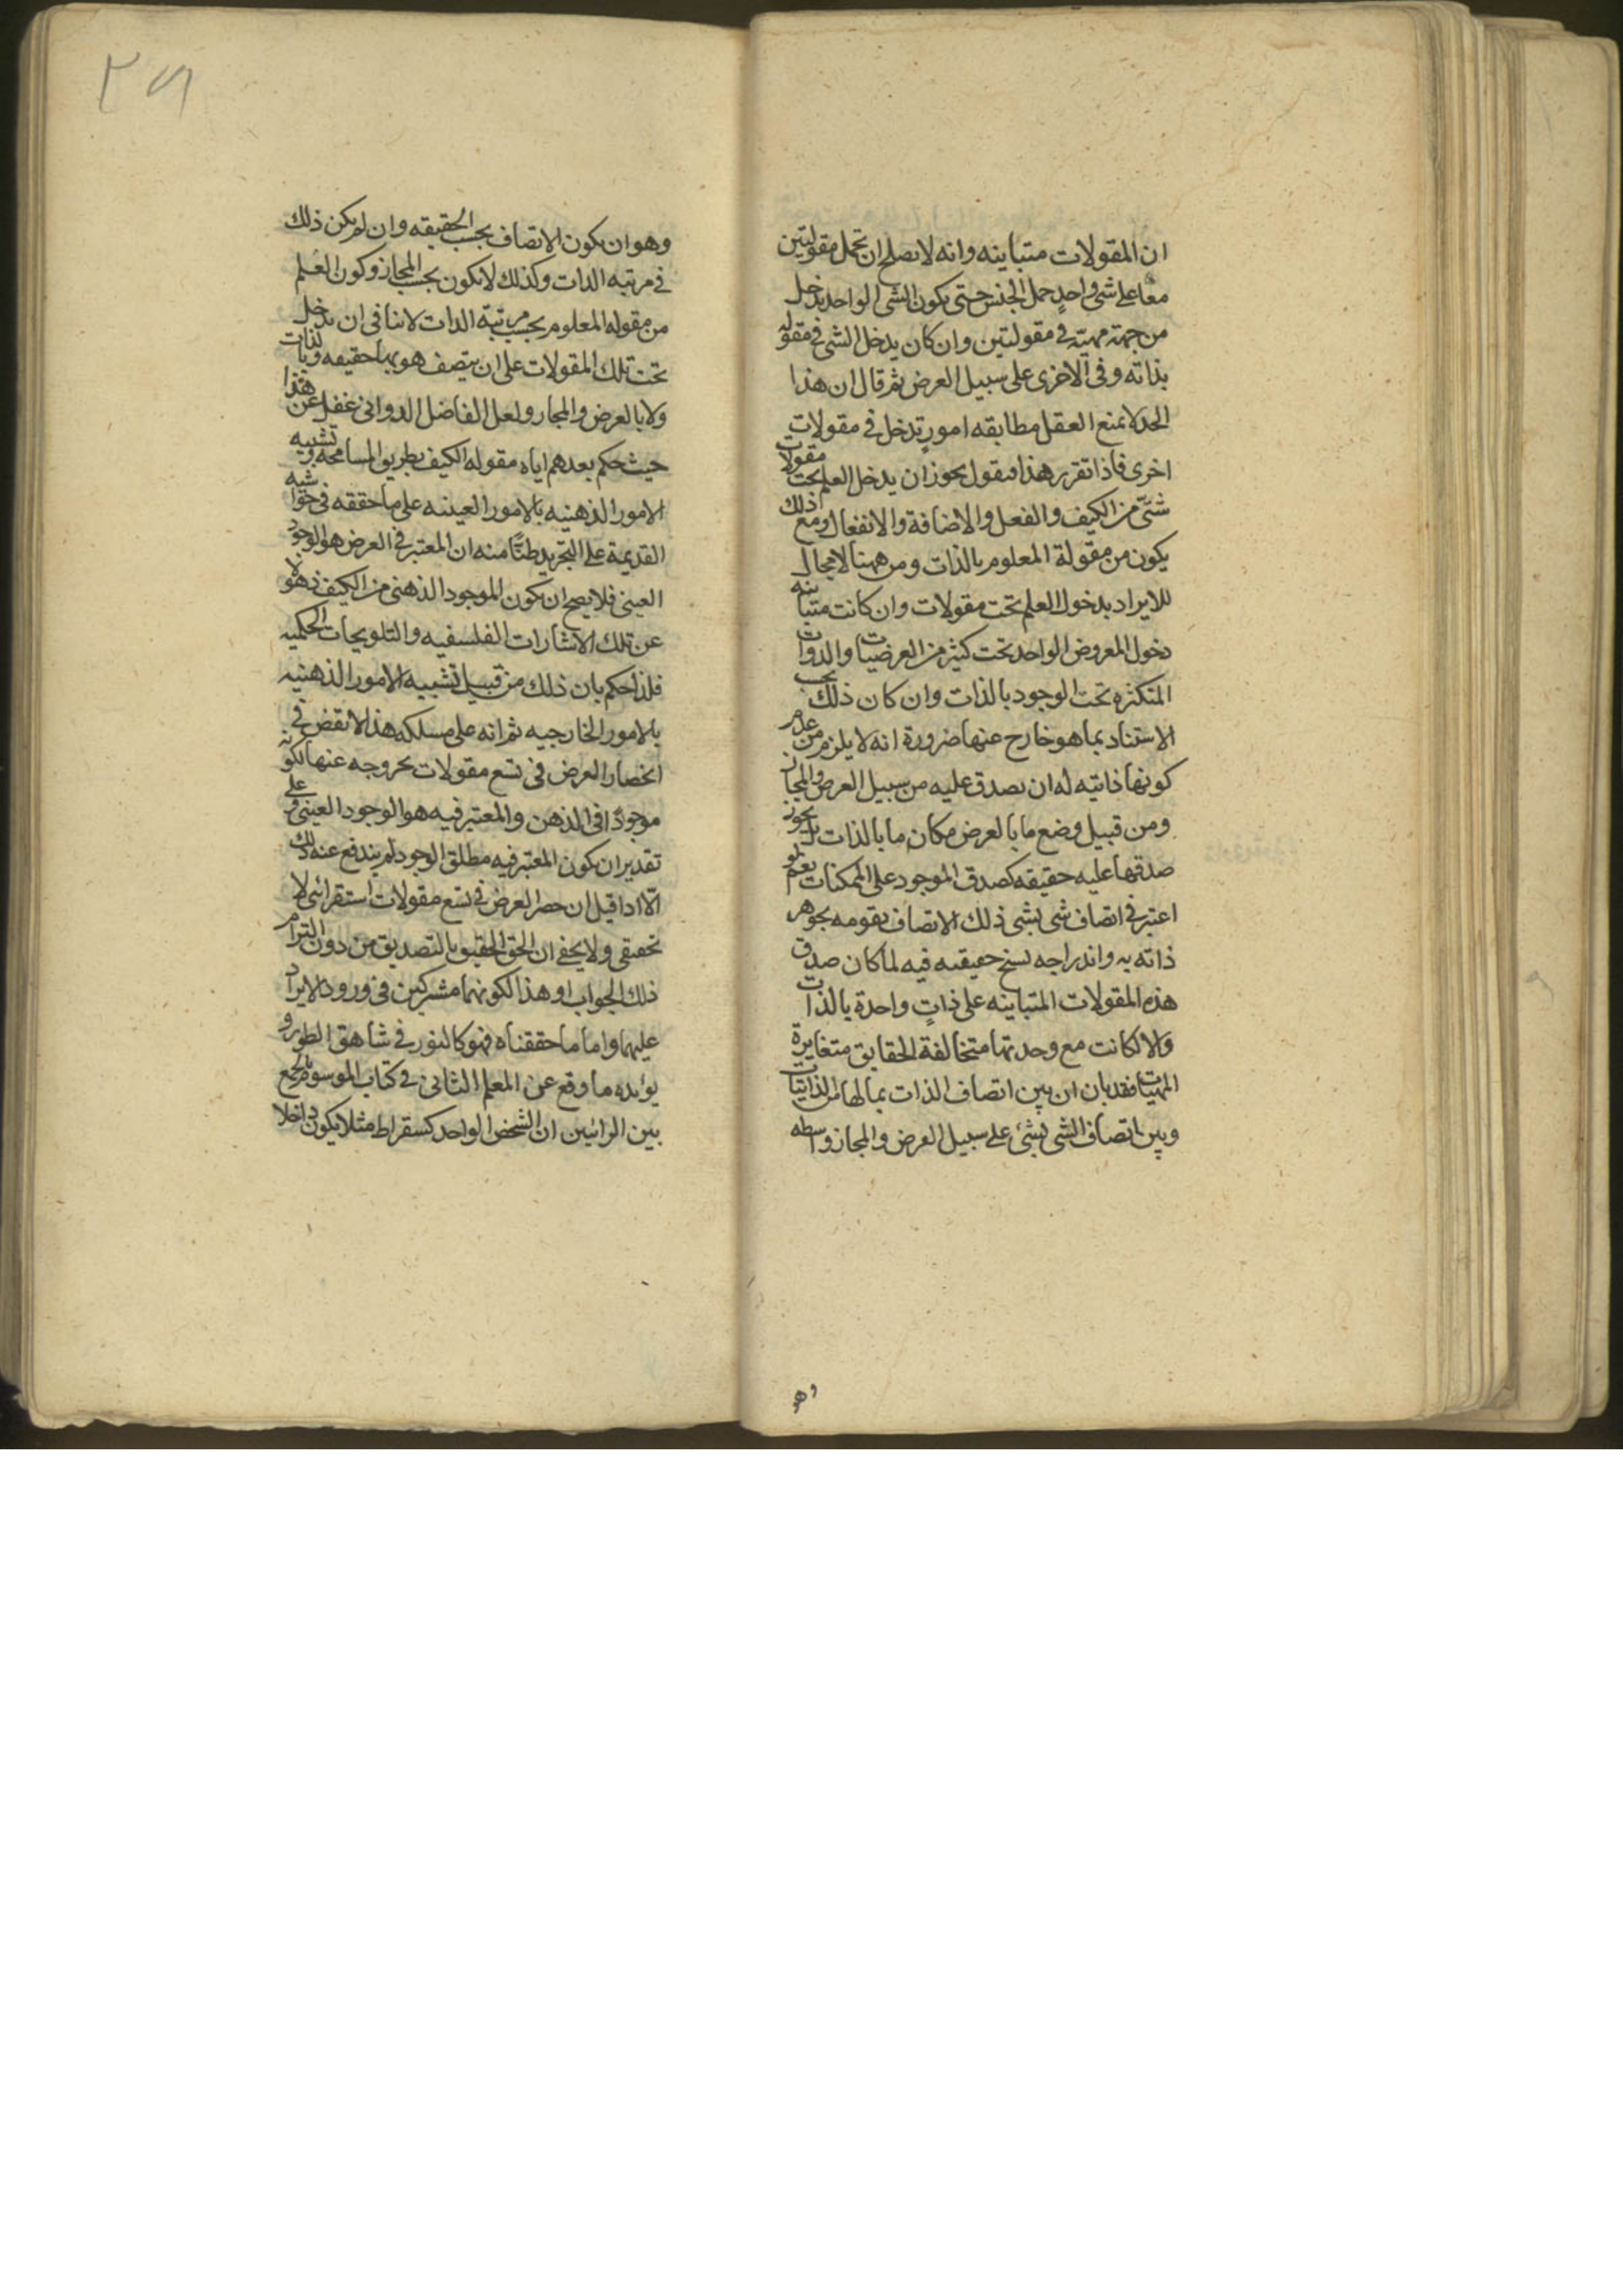 ان المقولات متباينه وانه لا يصلح ان تحمل مقولتين
معا على شئ واحدٍ حمل الجنس حتى يكون الشئ الواحد يدخل
من جهة مهيته في مقولتين وان كان يدخل الشئ في مقوله
بذاته وفى الاخرى على سبيل العرض ثم قال ان هذا
الحد لا يمنع العقل مطابقه امورٍ تدخل في مقولات
اخرى فاذا تقرر هذا فنقول يجوز ان يدخل العلم تحت مقولات
شتّى من الكيف والفعل والاضافة والانفعال ومع ذلك
يكون من مقولة المعلوم بالذات ومن ههنا لا مجال
للايراد بدخول العلم تحت مقولات وان كانت متباينه
دخول المعروض الواحد تحت كثير من العرضيات والذوات
المتكثره تحت الوجود بالذات وان كان ذلك بحسب
الاستناد بما هو خارج عنها ضرورة انه لا يلزم من عدم
كونها ذاتيته له ان يصدق عليه من سبيل العرض والمجاز
ومن قبيل وضع ما بالعرض مكان ما بالذات بل يجوز
صدقها عليه حقيقه كصدق الموجود على الممكنات نعم لو
اعتبر في اتصاف شى بشى ذلك الاتصاف تقومه بجوهر
ذاته به واندراجه بسنخ حقيقته فيه لما كان صدق
هذه المقولات المتباينه على ذاتٍ واحدة بالذات
والا لكانت مع وحدتها متخالفة الحقايق متغايرة
المهيات فقد بان ان بين اتصاف الذات بما لها من الذاتيات
وبين اتصاف الشى بشئ على سبيل العرض والمجاز واسطه
وهو
٣٩
وهو ان يكون الاتصاف بحسب الحقيقه وان لم يكن ذلك
في مرتبه الذات وكذلك لا يكون بحسب المجاز وكون العلم
من مقوله المعلوم بحسب مرتبة الذات لا ينافى ان يدخل
تحت تلك المقولات على ان يتصف هو بها حقيقه وبالذات
ولا بالعرض والمجاز ولعل الفاضل الدوانى غفل عن هذا
حيث حكم بعدهم اياه مقوله الكيف بطريق المسامحه وتشبيه
الامور الذهنيه بالامور العينيه على ما حققه في حواشيه
القديمة على التجريد ظنّاً منه ان المعتبر في العرض هو الوجود
العينى فلا يصح ان يكون الموجود الذهنى من الكيف ذهولا
عن تلك الاشارات الفلسفيه والتلويحات الحكميه
فلذا حكم بان ذلك من قبيل تشبيه الامور الذهنيه
بالامور الخارجيه ثم انه على مسلكه هذا لا نقض في
انحصار العرض في تسع مقولات بخروجه عنها لكونه
موجودًا في الذهن والمعتبر فيه هو الوجود العينى وعلى
تقدير ان يكون المعتبر فيه مطلق الوجود لم يندفع عنه ذلك
الّا اذا قيل ان حصر العرض في تسع مقولات استقرائى لا
تحقيقى ولا يخفى ان الحق الحقيق بالتصديق من دون التزام
ذلك الجواب او هذا لكونهما مشتركين في ورود الايراد
عليهما واما ما حققناه فهو كالنور في شاهق الطور و
يوءيده ما وقع عن المعلم الثانى في كتاب الموسوم بالجمع
بين الرائين ان الشخص الواحد كسقراط مثلا يكون داخلا